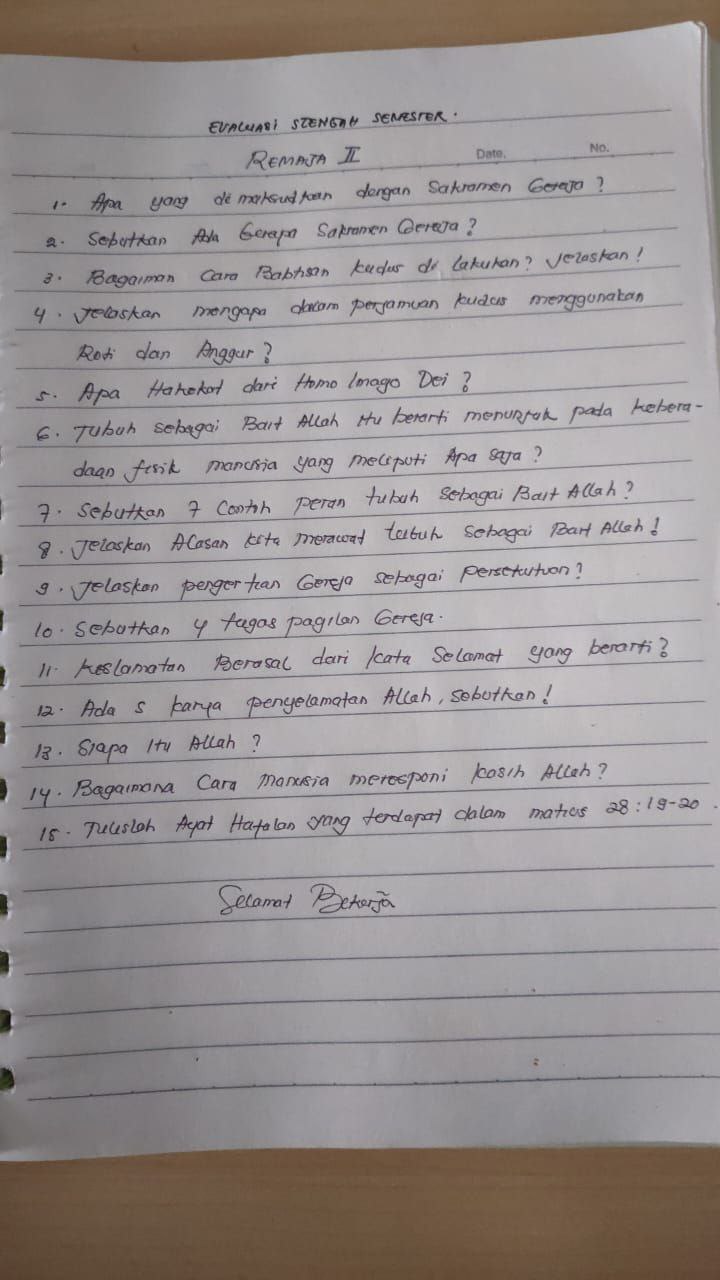 EVALUASI STENGAH SEMESTER.
REMAJA II Date. No.
1. Apa yang di maksud kan dengan Sakramen Gereja?
2. Sebutkan Ada Berapa Sakramen Gereja?
3. Bagaiman Cara Babtisan kudus di lakukan? Jelaskan!
4. Jelaskan mengapa dalam perjamuan kudus menggunakan
Roti dan Anggur?
5. Apa Hakekat dari Homo Imago Dei?
6. Tubuh sebagai Bait Allah Itu berarti menunjuk pada kebera-
daan fisik manusia yang meliputi Apa saja?
7. Sebutkan 7 Contoh peran tubuh sebagai Bait Allah?
8. Jelaskan Alasan kita merawat tubuh sebagai Bait Allah!
9. Jelaskan pengertian Gereja sebagai persekutuan?
10. Sebutkan 4 tugas pagilan Gereja.
11. Keslamatan Berasal dari kata Selamat yang berarti?
12. Ada 5 karya penyelamatan Allah, sebutkan!
13. Siapa Itu Allah?
14. Bagaimana Cara Manusia meresponi kasih Allah?
15. Tulislah Ayat Hafalan yang terdapat dalam matius 28:19-20.
Selamat Bekerja